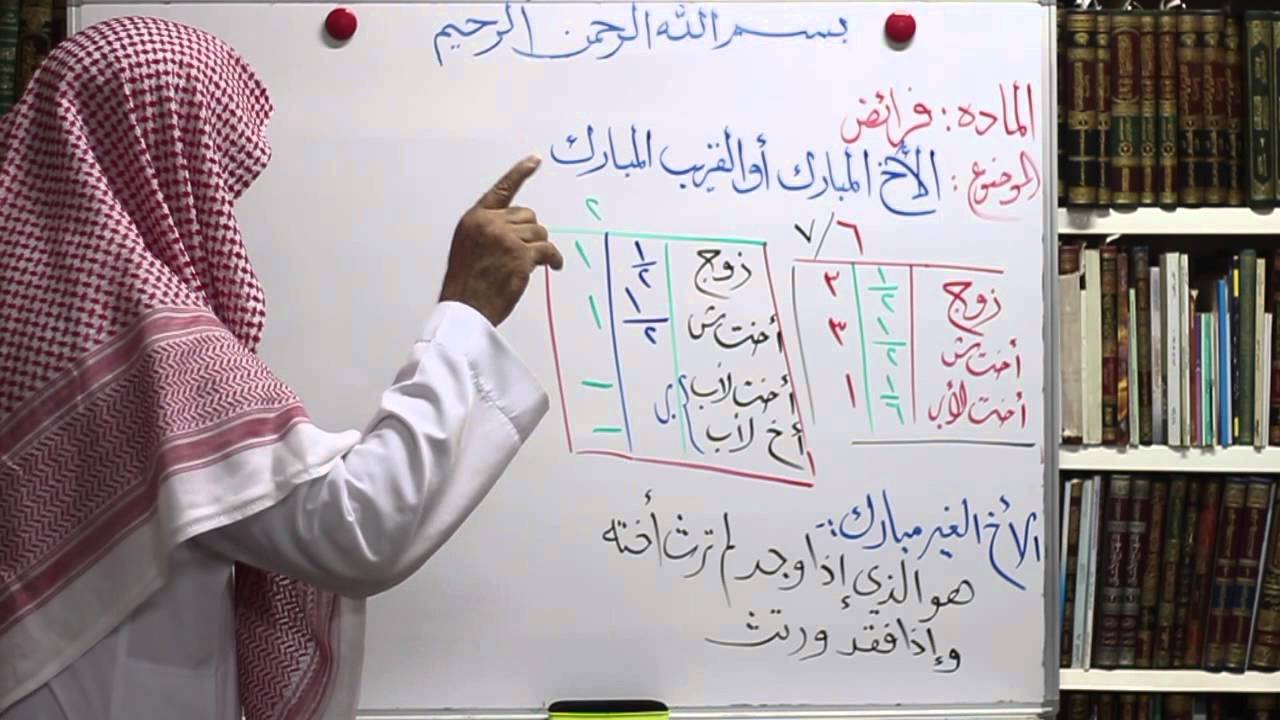 بسم الله الرحمن الرحيم
الماده : فرائض
الموضوع : الأخ المبارك أو القريب المبارك
٦/٧
زوج ١/٢ ٣
أخت ش ١/٢ ٣
أخت لأب ١/٦ ١
٢
زوج ١/٢ ١
أخت ش ١/٢ ١
أخت لأب —
أخ لأب —
الأخ الغير مبارك :-
هو الذي إذا وجد لم ترث أخته
وإذا فقد ورثت